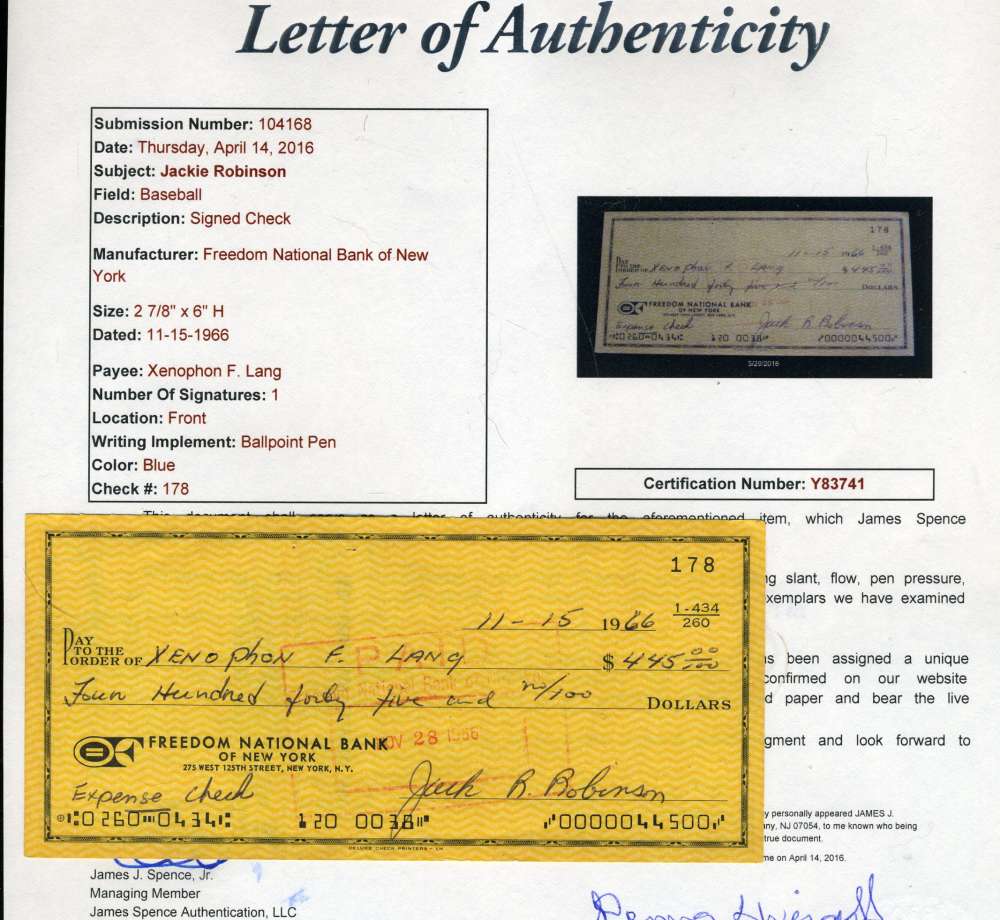 Letter of Authenticity
Submission Number: 104168
Date: Thursday, April 14, 2016
Subject: Jackie Robinson
Field: Baseball
Description: Signed Check
Manufacturer: Freedom National Bank of New
York
Size: 2 7/8" x 6" H
Dated: 11-15-1966
Payee: Xenophon F. Lang
Number Of Signatures: 1
Location: Front
Writing Implement: Ballpoint Pen
Color: Blue
Check #: 178
178
11-15 1966
PAY TO THE ORDER OF Xenophon F. Lang $445 00/100
Four Hundred forty five and no/100 DOLLARS
FREEDOM NATIONAL BANK
OF NEW YORK
Expense check Jack R. Robinson
5/29/2016
Certification Number: Y83741
This document shall serve as a letter of authenticity for the aforementioned item, which James Spence
slant, flow, pen pressure,
exemplars we have examined
been assigned a unique
confirmed on our website
paper and bear the live
and look forward to
178
11-15 1966 1-434
260
PAY
TO THE
ORDER OF Xenophon F. Lang $445 00/100
Four Hundred forty five and no/100 DOLLARS
FREEDOM NATIONAL BANK
OF NEW YORK
275 WEST 125TH STREET, NEW YORK, N.Y.
PAID
NOV 28 1966
Expense check Jack R. Robinson
⑆0260⑉0434⑆ 120 0038⑈ ⑈0000044500⑈
DELUXE CHECK PRINTERS - 1H
personally appeared JAMES J.
NJ 07054, to me known who being
true document.
me on April 14, 2016.
James J. Spence, Jr.
Managing Member
James Spence Authentication, LLC